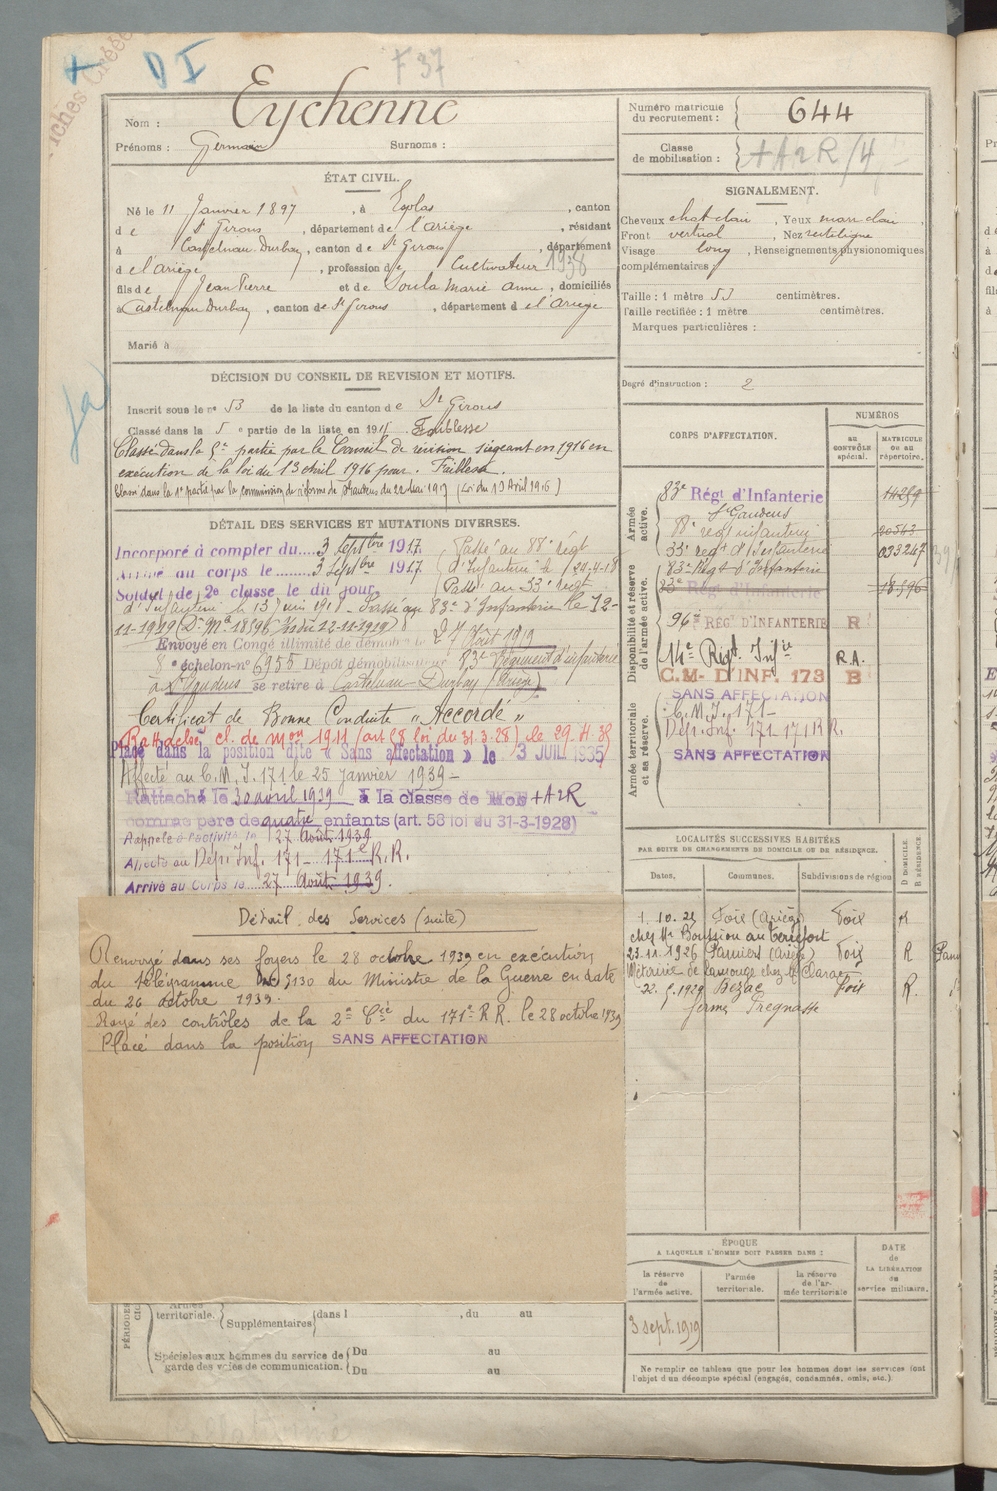 Fiches Créée
D I
F 37
Nom : Eychenne
Prénoms : Germain Surnoms :
Numéro matricule du recrutement : 644
Classe de mobilisation : +A2R/4
ÉTAT CIVIL.
Né le 11 Janvier 1897, à Esplas, canton
de St Girons, département de l'Ariège, résidant
à Castelnau Durban, canton de St Girons, département
de l'Ariège, profession de Cultivateur 1938
fils de Jean Pierre et de Soula Marie Anne, domiciliés
à Castelnau Durban, canton de St Girons, département d e l'Ariège
Marié à
SIGNALEMENT.
Cheveux chat clair, Yeux marr clair,
Front vertical, Nez rectiligne
Visage long, Renseignements physionomiques
complémentaires :
Taille : 1 mètre 53 centimètres.
Taille rectifiée : 1 mètre centimètres.
Marques particulières :
Degré d'instruction : 2
DÉCISION DU CONSEIL DE REVISION ET MOTIFS.
Inscrit sous le n° 53 de la liste du canton de St Girons
Classé dans la 5 e partie de la liste en 191 Faiblesse
Classé dans la 5e partie par le Conseil de révision siégeant en 1916 en
exécution de la loi du 13 Avril 1916 pour Faiblesse.
Classé dans la 1e partie par la commission de réforme de St Gaudens du 22 Mai 1917 (Loi du 13 Avril 1916)
DÉTAIL DES SERVICES ET MUTATIONS DIVERSES.
Incorporé à compter du 3 Septbre 1917. Passé au 88e régt
Arrivé au corps le 3 Septbre 1917 d'Infanterie le 24-4-18
Soldat de 2e classe le dit jour. Passé au 33e régt
d'Infanterie le 13 juin 1918. Passé au 83e d'Infanterie le 12-
11-1919 (Dn Mle 18596 du 22-11-1919)
Envoyé en Congé illimité de démobilisation le 27 Août 1919
8 e échelon-n° 6955 Dépôt démobilisateur 83e Régiment d'infanterie
à St Gaudens se retire à Castelnau-Durban (Ariège)
Certificat de Bonne Conduite "Accordé"
Rattaché cl. de mon 1911 (art 58 loi du 31.3.28) le 29.4.35
Placé dans la position dite « Sans affectation » le 3 JUIL 1935
Affecté au C.M.I. 171 le 25 janvier 1939 -
Rattaché le 30 avril 1939 à la classe de Mob +A2R
comme père de quatre enfants (art. 58 loi du 31-3-1928)
Rappelé à l'activité le 27 Août 1939
Affecté au Dép. Inf. 171 - 171e R.R.
Arrivé au Corps le 27 Août 1939.
Détail des Services (suite)
Renvoyé dans ses foyers le 28 octobre 1939 en exécution
du télégramme No 9130 du Ministre de la Guerre en date
du 26 octobre 1939.
Rayé des contrôles de la 2e Cie du 171e R R. le 28 octobre 1939
Placé dans la position SANS AFFECTATION
CORPS D'AFFECTATION.
NUMÉROS
au CONTRÔLE spécial.
MATRICULE ou au répertoire.
Armée active.
83e Régt d'Infanterie 14259
St Gaudens
88e regt infanterie 20543
33e regt d'Infanterie 033247
83e Régt d'Infanterie
Disponibilité et réserve de l'armée active.
83e Régt d'Infanterie 18596
96e RÉGT D'INFANTERIE R
14e Régt. Infie R.A.
C.M- D'INF. 173 B
SANS AFFECTATION
Armée territoriale et sa réserve.
C.M.I. 171 -
Dép. Inf. 171-171 R R.
SANS AFFECTATION
LOCALITÉS SUCCESSIVES HABITÉES
PAR SUITE DE CHANGEMENTS DE DOMICILE OU DE RÉSIDENCE.
Dates. Communes. Subdivisions de région D DOMICILE R RÉSIDENCE
1. 10. 23 Foix (Ariège) Foix R
chez Mr Boussion au Terrefort
23.11.1926 Pamiers (Ariège) Foix R
Métairie de Lamouge chez Mr Clarac
22. 5. 1929 Bezac Foix R.
ferme Pregnasse
ÉPOQUE
A LAQUELLE L'HOMME DOIT PASSER DANS :
la réserve de l'armée active.
l'armée territoriale.
la réserve de l'armée territoriale
DATE de LA LIBÉRATION du service militaire.
3 sept. 1919
Ne remplir ce tableau que pour les hommes dont les services font
l'objet d'un décompte spécial (engagés, condamnés, omis, etc.).
Armée territoriale. Supplémentaires dans l , du au
Spéciales aux hommes du service de garde des voies de communication.
Du au
Du au